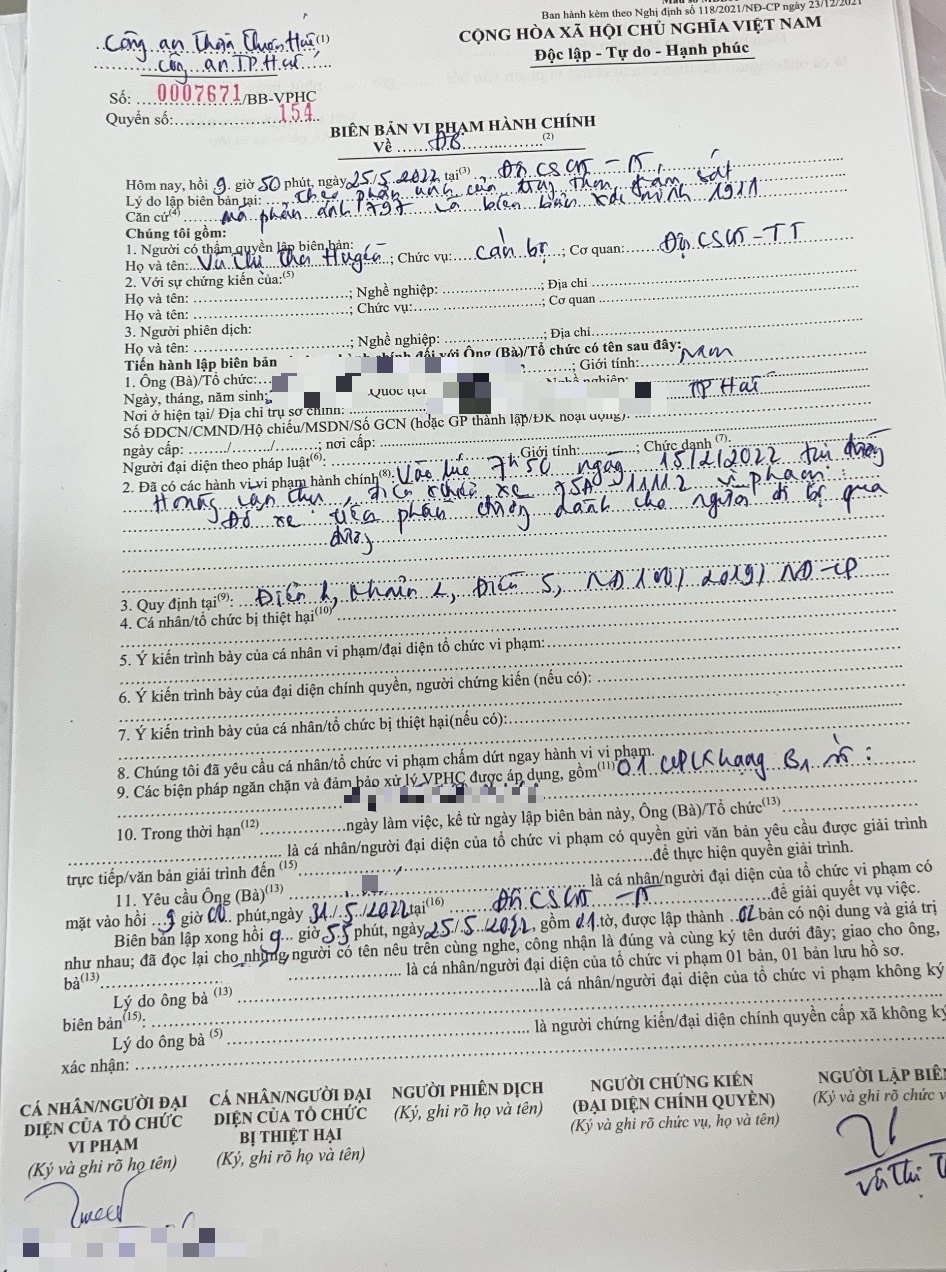 Ban hành kèm theo Nghị định số 118/2021/NĐ-CP ngày 23/12/2021
Công an
Công an T.P. Huế
(1)
CỘNG HÒA XÃ HỘI CHỦ NGHĨA VIỆT NAM
Độc lập - Tự do - Hạnh phúc
Số: 0007671/BB-VPHC
Quyển số: 154
BIÊN BẢN VI PHẠM HÀNH CHÍNH
Về ĐB (2)
Hôm nay, hồi 9 giờ 50 phút, ngày 25/5/2022 tại(3) Đội CSGT - TT
Lý do lập biên bản tại: Theo phản ánh của
Căn cứ(4) mã phản ánh 797 và biên bản xác minh 1911
Chúng tôi gồm:
1. Người có thẩm quyền lập biên bản:
Họ và tên: Vũ Thị ; Chức vụ: cán bộ; Cơ quan: Đội CSGT-TT
2. Với sự chứng kiến của:(5)
Họ và tên: ; Nghề nghiệp: ; Địa chỉ
Họ và tên: ; Chức vụ: ; Cơ quan
3. Người phiên dịch:
Họ và tên: ; Nghề nghiệp: ; Địa chỉ
Tiến hành lập biên bản vi phạm hành chính đối với Ông (Bà)/Tổ chức có tên sau đây:
1. Ông (Bà)/Tổ chức: ; Giới tính: Nam
Ngày, tháng, năm sinh: Quốc tịch Nghề nghiệp:
Nơi ở hiện tại/ Địa chỉ trụ sở chính: TP Huế
Số ĐDCN/CMND/Hộ chiếu/MSDN/Số GCN (hoặc GP thành lập/ĐK hoạt động):
ngày cấp: ..../..../....; nơi cấp:
Người đại diện theo pháp luật(6): Giới tính: ; Chức danh (7):
2. Đã có các hành vi vi phạm hành chính(8): Vào lúc 7h50 ngày 15/2/2022 tại đường
Hoàng , điều khiển xe 75A 11112 vi phạm:
Đỗ xe trên phần đường dành cho người đi bộ qua
đường
3. Quy định tại(9): Khoản , Điều 5, NĐ 100/2019/NĐ-CP
4. Cá nhân/tổ chức bị thiệt hại(10)
5. Ý kiến trình bày của cá nhân vi phạm/đại diện tổ chức vi phạm:
6. Ý kiến trình bày của đại diện chính quyền, người chứng kiến (nếu có):
7. Ý kiến trình bày của cá nhân/tổ chức bị thiệt hại(nếu có):
8. Chúng tôi đã yêu cầu cá nhân/tổ chức vi phạm chấm dứt ngay hành vi vi phạm.
9. Các biện pháp ngăn chặn và đảm bảo xử lý VPHC được áp dụng, gồm(11) 01 GPLX hạng B1 số:
10. Trong thời hạn(12) ngày làm việc, kể từ ngày lập biên bản này, Ông (Bà)/Tổ chức(13)
là cá nhân/người đại diện của tổ chức vi phạm có quyền gửi văn bản yêu cầu được giải trình
trực tiếp/văn bản giải trình đến (15) để thực hiện quyền giải trình.
11. Yêu cầu Ông (Bà)(13) là cá nhân/người đại diện của tổ chức vi phạm có
mặt vào hồi 9 giờ 00 phút, ngày 31/5/2022 tại(16) Đội CSGT - TT để giải quyết vụ việc.
Biên bản lập xong hồi 9 giờ 55 phút, ngày 25/5/2022, gồm 01 tờ, được lập thành 02 bản có nội dung và giá trị
như nhau; đã đọc lại cho những người có tên nêu trên cùng nghe, công nhận là đúng và cùng ký tên dưới đây; giao cho ông,
bà(13) là cá nhân/người đại diện của tổ chức vi phạm 01 bản, 01 bản lưu hồ sơ.
Lý do ông bà (13) là cá nhân/người đại diện của tổ chức vi phạm không ký
biên bản(15):
Lý do ông bà (5) là người chứng kiến/đại diện chính quyền cấp xã không ký
xác nhận:
CÁ NHÂN/NGƯỜI ĐẠI DIỆN CỦA TỔ CHỨC VI PHẠM
(Ký và ghi rõ họ tên)
CÁ NHÂN/NGƯỜI ĐẠI DIỆN CỦA TỔ CHỨC BỊ THIỆT HẠI
(Ký, ghi rõ họ và tên)
NGƯỜI PHIÊN DỊCH
(Ký, ghi rõ họ và tên)
NGƯỜI CHỨNG KIẾN
(ĐẠI DIỆN CHÍNH QUYỀN)
(Ký, ghi rõ chức vụ, họ và tên)
NGƯỜI LẬP BIÊN
(Ký và ghi rõ chức
Vũ Thị